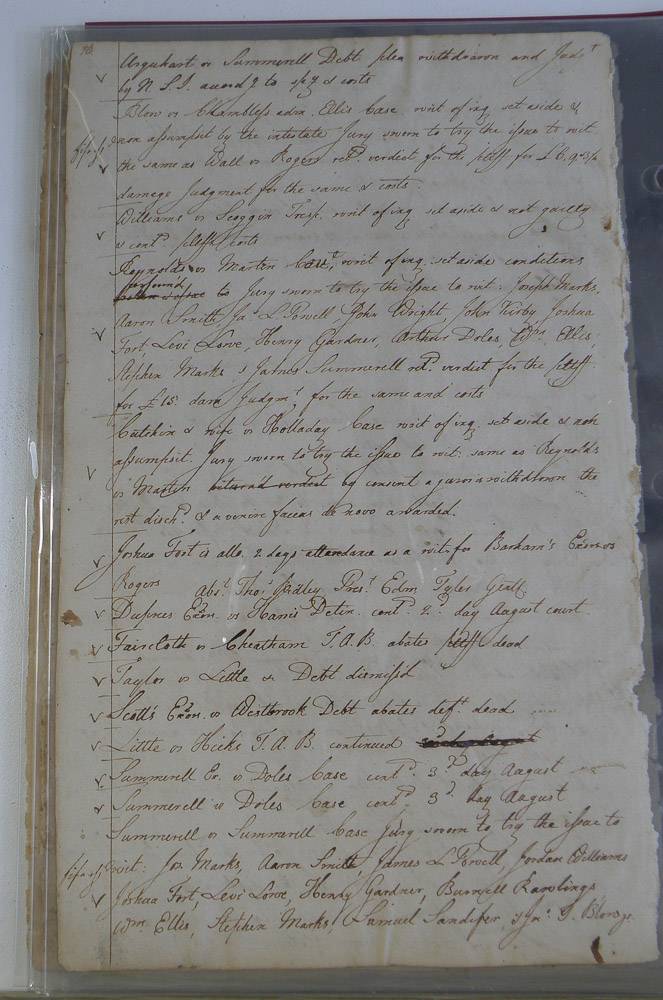 Urquhart vs Summerell Debt plea withdrawn and Judt
by N. S. I. accord g to spy & costs
Blow vs Chambless adm. Ellis Case writ of inq. set aside &
non assumpsit by the intestate Jury sworn to try the issue to wit
the same as Wall vs Rogers retd. verdict for the pltff for £
damage Judgment for the same & costs.
Williams vs Scoggin Tresp. writ of inq. set aside & not guilty
& contd. pltffs costs
Reynolds vs Martin Case, writ of inq. set aside conditions
perform'd Jury sworn to try the issue to wit: Joseph Marks,
Aaron Smith, Jas. L Powell, John Wright, John Kirby, Joshua
Fort, Levi Lowe, Henry Gardner, Arthur Doles, Wm. Ellis,
Stephen Marks & James Summerell retd. verdict for the pltff
for £15. dam Judgmt. for the same and costs
Cutchin & wife vs Holladay Case writ of inq. set aside & non
assumpsit. Jury sworn to try the issue to wit: same as Reynolds
vs Martin return'd verdict by consent a juror withdrawn the
rest disch'd. & a venire facias de novo awarded.
Joshua Fort is allo. 2 days attendance as a wits. for Barham's Exors vs
Rogers abst. Thos. Ridley Prest. Edm Tyler Gentl.
Duprees Exor. vs Harris Detin. contd. 2d. day August court
Faircloth vs Cheatham T. A. B. abates pltff dead
Taylor vs Little & Debt dismiss'd
Scott's Exor. vs Westbrook Debt abates deft. dead
Little vs Hicks T. A. B. continued
Summerell Ex. vs Doles Case contd. 3d. day August
Summerell vs Doles Case contd. 3d. day August
Summerell vs Summerell Case Jury sworn to try the issue to
wit: Jos. Marks, Aaron Smith, James L Powell, Jordan Williams
Joshua Fort, Levi Lowe, Henry Gardner, Burwell Rawlings
Wm. Ellis, Stephen Marks, Samuel Sandifer, & Jno. T. Blow